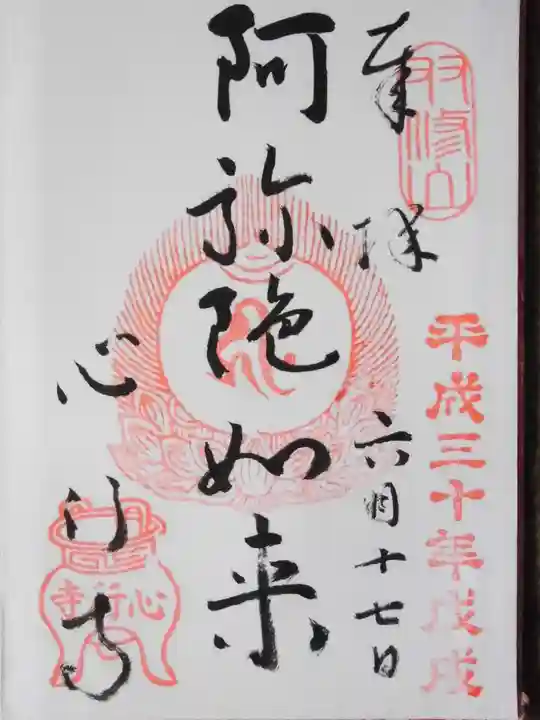 双修山
平成三十年戊戌
奉拝
六月十七日
阿弥陀如来
心行寺
心行寺